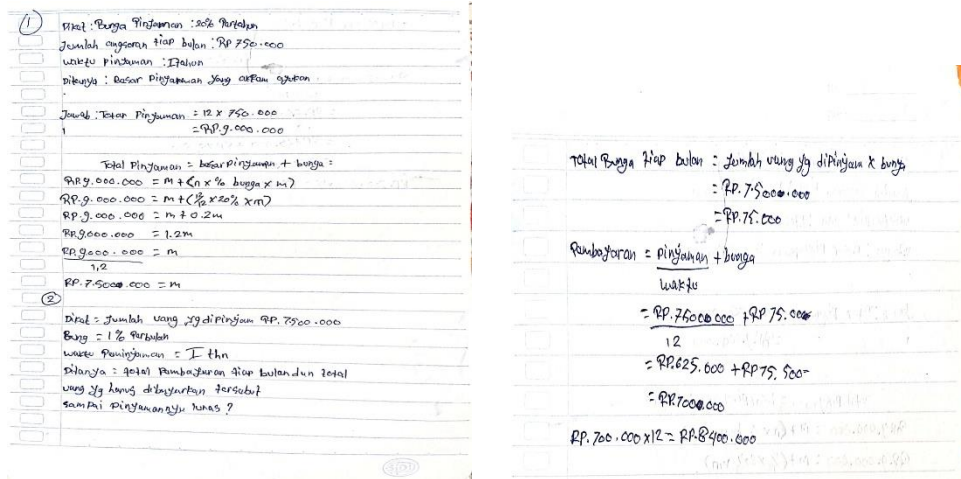 1
Diket : Bunga Pinjaman : 20% Pertahun
Jumlah angsuran tiap bulan : RP 750.000
waktu pinjaman : 1 tahun
Ditanya : Besar Pinjaman yang akan ajukan
Jawab : Total Pinjaman = 12 x 750.000
= RP.9.000.000
Total Pinjaman = besar pinjaman + bunga =
RP.9.000.000 = m + (n x % bunga x m)
RP.9.000.000 = m + (12/12 x 20% x m)
RP.9.000.000 = m + 0.2m
RP.9.000.000 = 1.2m
RP.9.000.000 = m
1,2
RP.7.5000.000 = m
2
Diket = Jumlah uang yg dipinjam RP.7500.000
Bung = 1% Perbulan
waktu Peminjaman = I thn
Ditanya = total Pembayaran tiap bulan dan total
uang yg harus dibayarkan tersebut
sampai pinjamannya lunas ?
Total Bunga tiap bulan = Jumlah uang yg dipinjam x bunga
= RP.7.5000.000
= RP.75.000
Pembayaran = pinjaman + bunga
waktu
= RP.75000000 + RP 75.000
12
= RP.625.000 + RP 75.500=
= RP.7000.000
RP.700.000 x 12 = RP.8.400.000